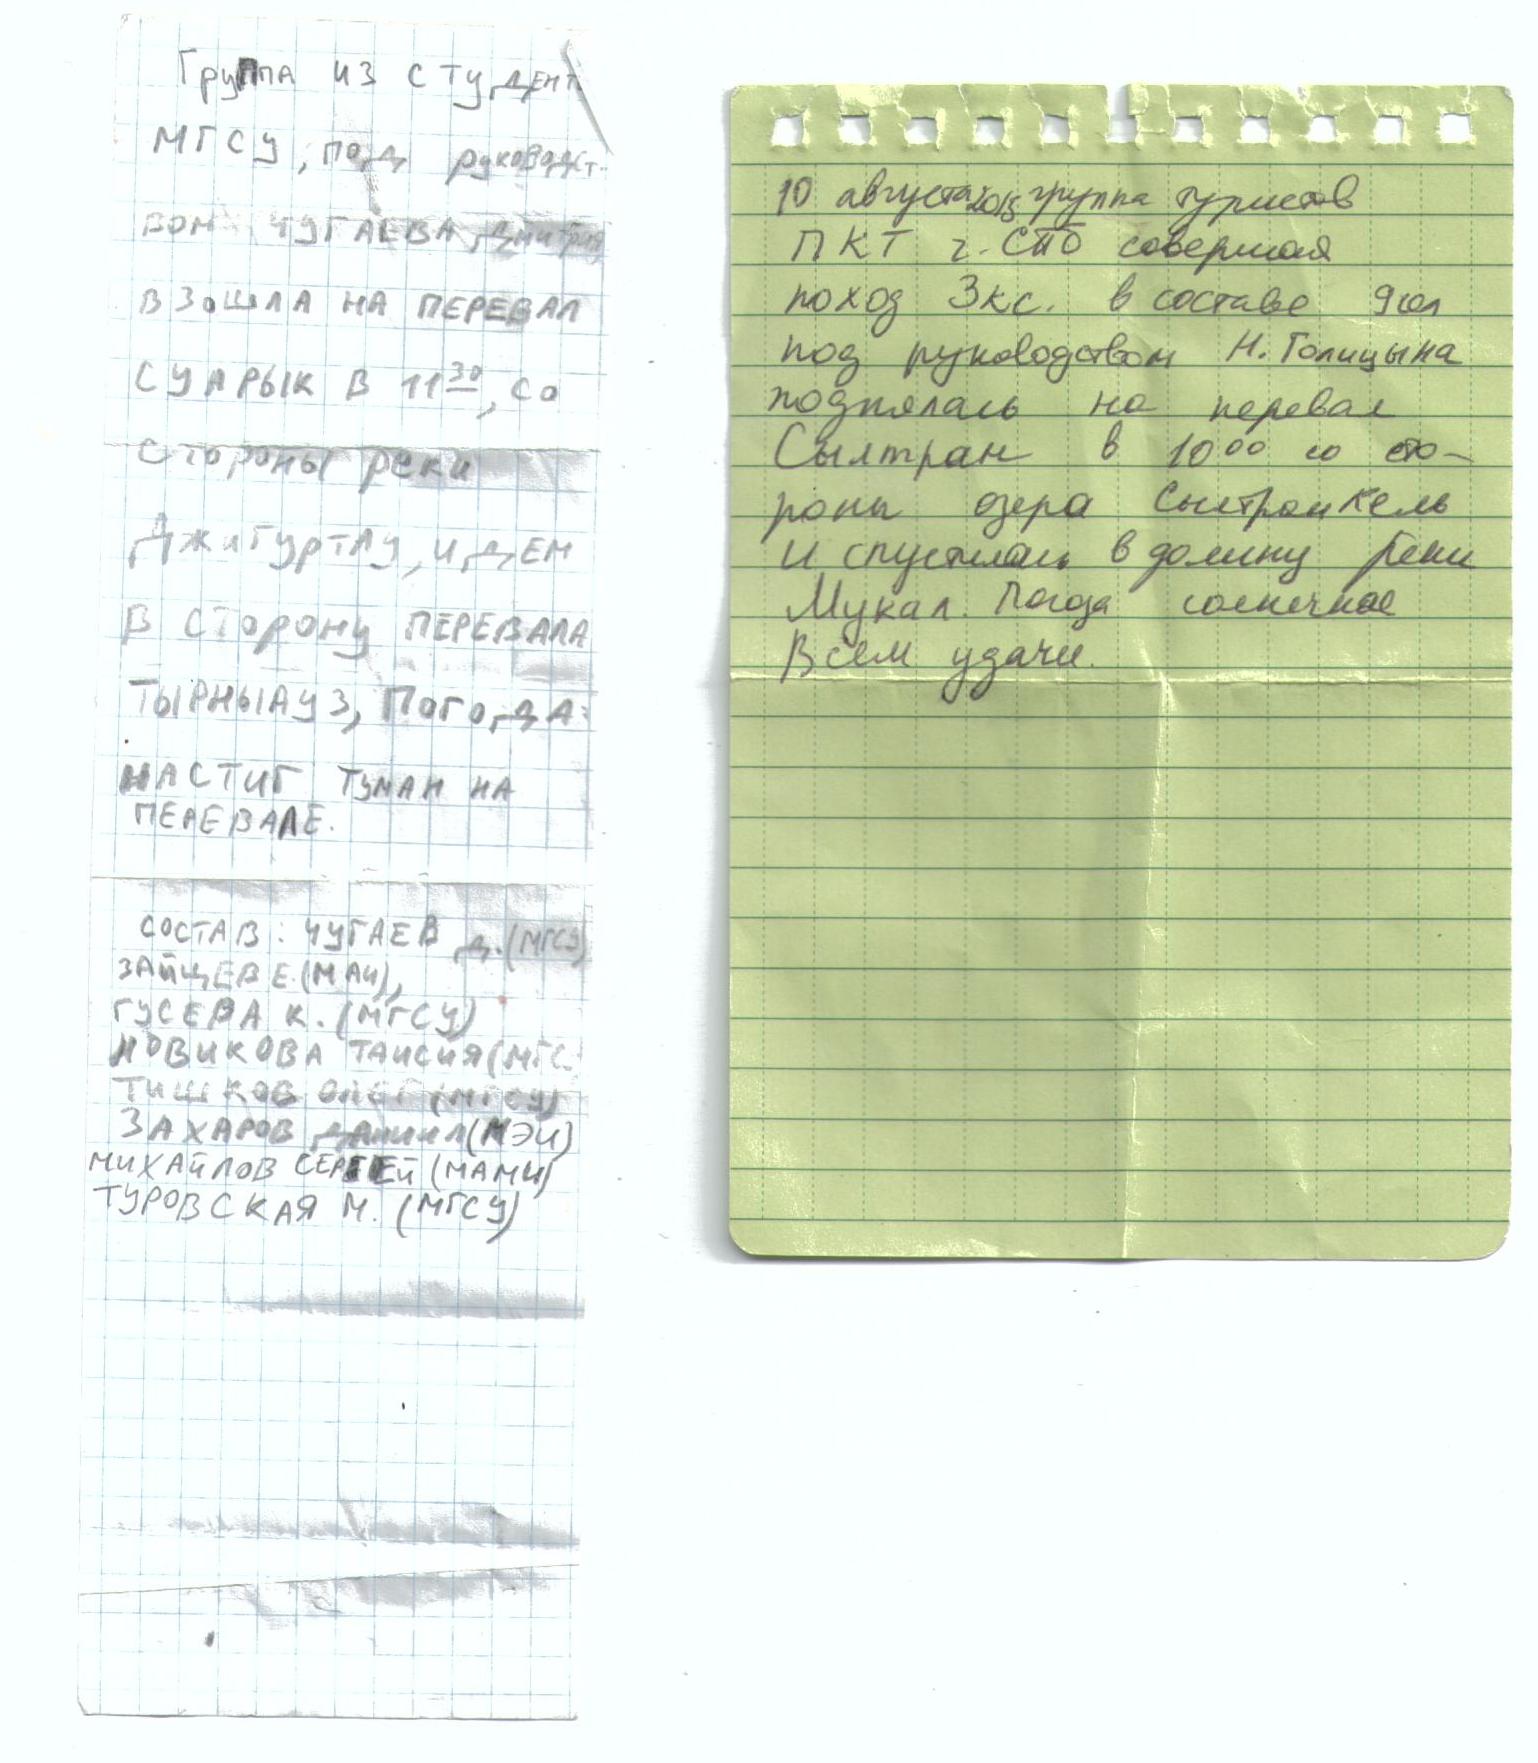 Группа из студент.
МГСУ, под руководст-
вом Чугаева Дмитрия
взошла на перевал
Суарык в 11³⁰, со
стороны реки
Джигуртлу, идем
в сторону перевала
Тырныауз, Погода:
настиг туман на
перевале.
Состав: Чугаев Д. (МГСУ)
Зайцев Е. (МАИ),
Гусева К. (МГСУ)
Новикова Таисия (МГС
Тишков Олег (МГСУ)
Захаров Даниил (МЭИ)
Михайлов Сергей (МАМИ)
Туровская М. (МГСУ)
10 августа 2015 группа туристов
ПКТ г. СПб совершая
поход 3 кс. в составе 9 чел
под руководством Н. Голицына
поднялась на перевал
Сылтран в 10⁰⁰ со сто-
роны озера Сылтранкель
и спустилась в долину реки
Мукал. Погода солнечная
Всем удачи.